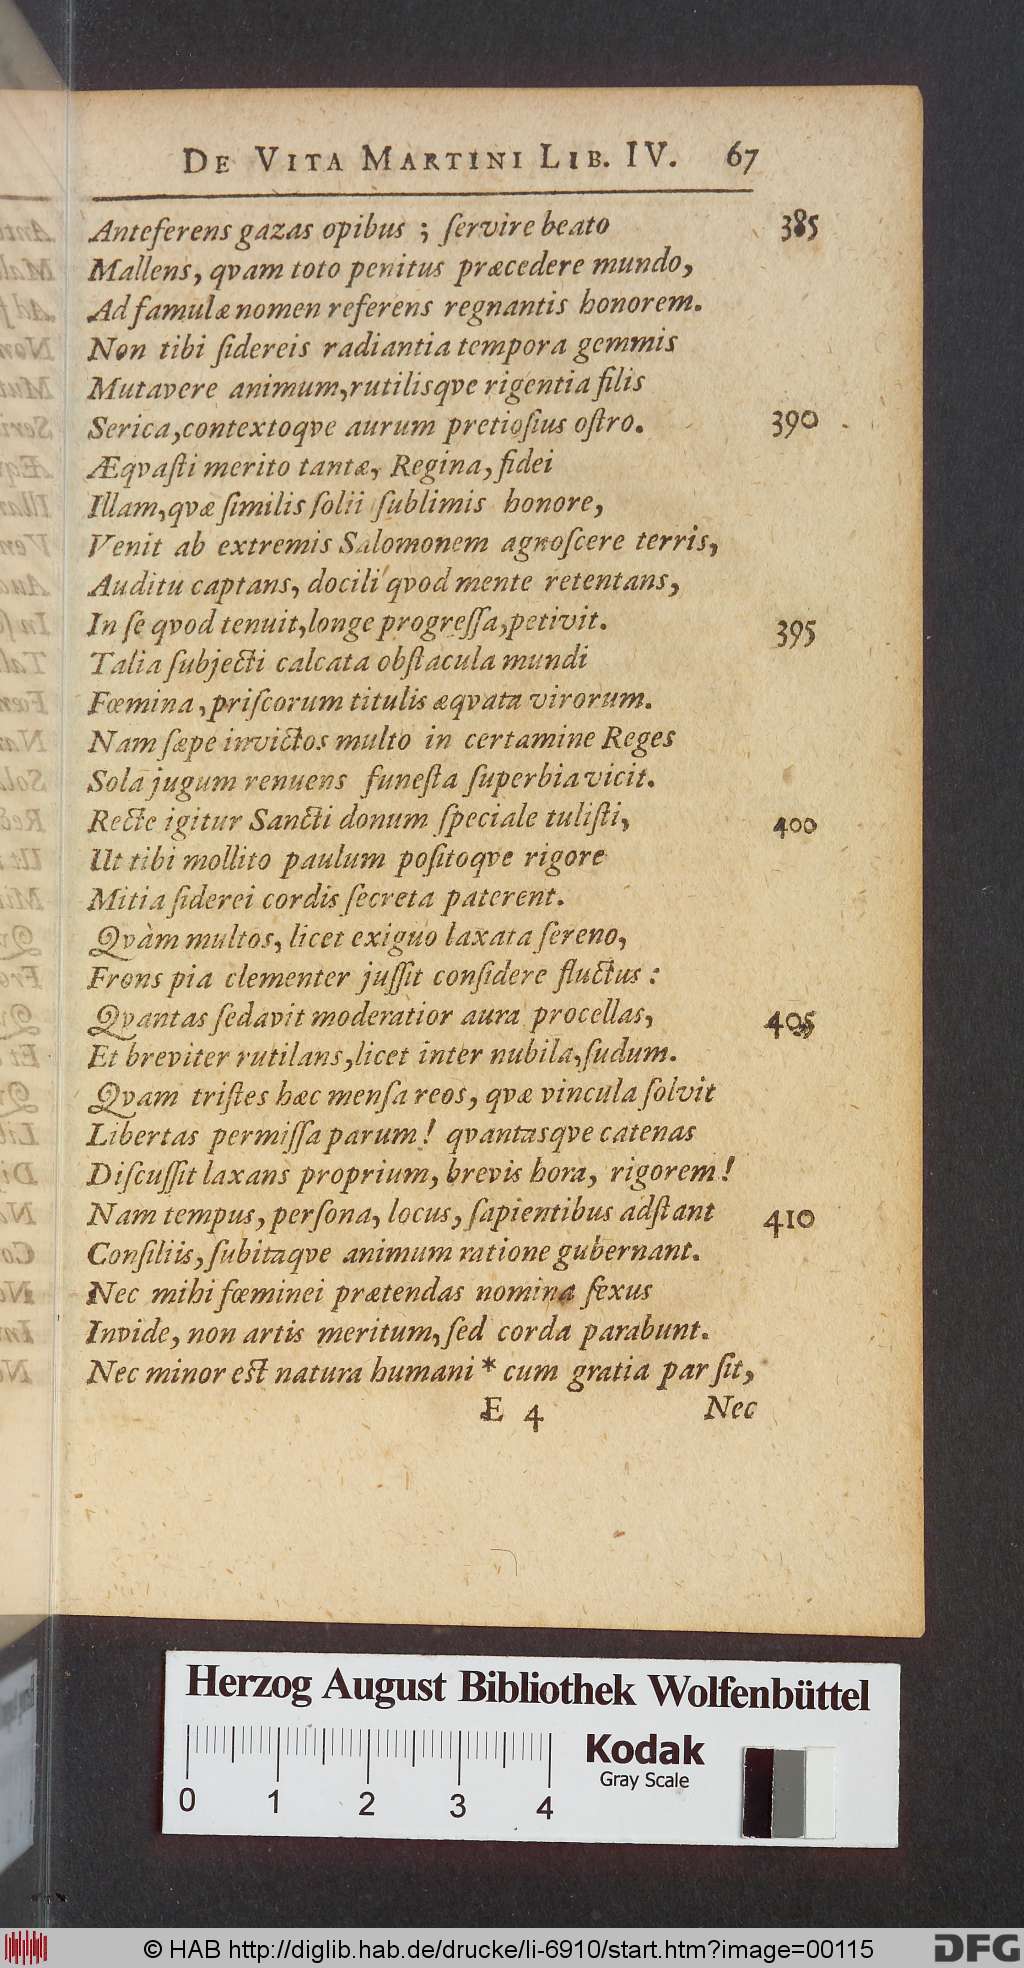 DE VITA MARTINI LIB. IV. 67
Anteferens gazas opibus ; ſervire beato 385
Mallens, qvam toto penitus præcedere mundo,
Ad famulæ nomen referens regnantis honorem.
Non tibi ſidereis radiantia tempora gemmis
Mutavere animum, rutilisqve rigentia filis
Serica, contextoqve aurum pretioſius oſtro. 390
Æqvaſti merito tantæ, Regina, fidei
Illam, qvæ ſimilis ſolii ſublimis honore,
Venit ab extremis Salomonem agnoſcere terris,
Auditu captans, docili qvod mente retentans,
In ſe qvod tenuit, longe progreſſa, petivit. 395
Talia ſubjecti calcata obſtacula mundi
Fœmina, priſcorum titulis æqvata virorum.
Nam ſæpe invictos multo in certamine Reges
Sola jugum renuens funeſta ſuperbia vicit.
Recte igitur Sancti donum ſpeciale tuliſti, 400
Ut tibi mollito paulum poſitoqve rigore
Mitia ſiderei cordis ſecreta paterent.
Qvàm multos, licet exiguo laxata ſereno,
Frons pia clementer juſſit conſidere fluctus :
Qvantas ſedavit moderatior aura procellas, 405
Et breviter rutilans, licet inter nubila, ſudum.
Qvam triſtes hæc menſa reos, qvæ vincula ſolvit
Libertas permiſſa parum! qvantasqve catenas
Diſcuſſit laxans proprium, brevis hora, rigorem!
Nam tempus, perſona, locus, ſapientibus adſtant 410
Conſiliis, ſubitaqve animum ratione gubernant.
Nec mihi fœminei prætendas nomina ſexus
Invide, non artis meritum, ſed corda parabunt.
Nec minor eſt natura humani * cum gratia par ſit,
E 4 Nec
Herzog August Bibliothek Wolfenbüttel
Kodak
Gray Scale
0 1 2 3 4
© HAB http://diglib.hab.de/drucke/li-6910/start.htm?image=00115
DFG